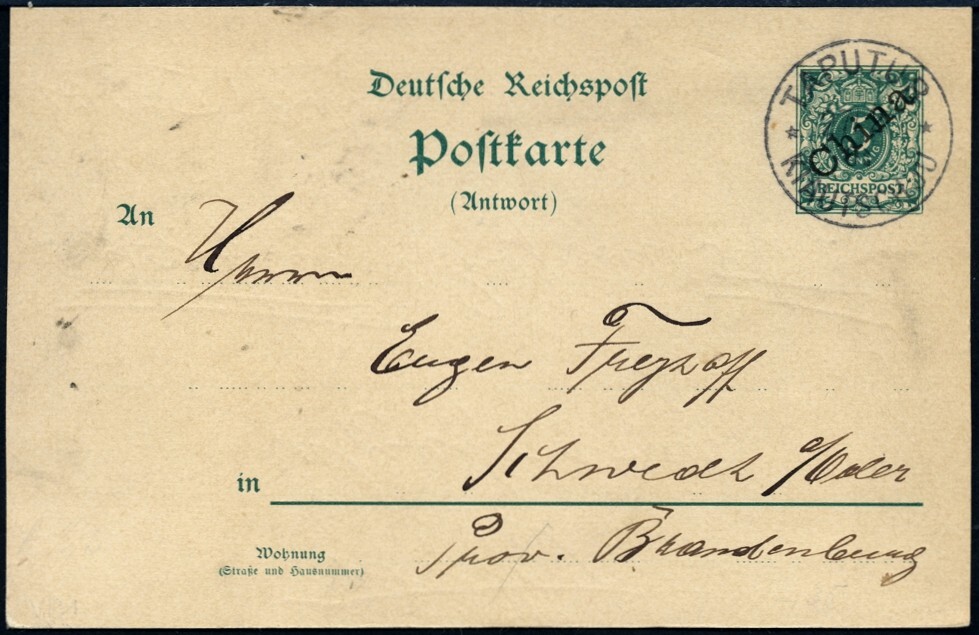 Deutsche Reichspost
Postkarte
(Antwort)
TAPUTUR
KIAUTSCHOU
China
5
REICHSPOST
An Herrn
Eugen Freyhoff
in Schwedt a/Oder
Wohnung
(Straße und Hausnummer)
Prov. Brandenburg